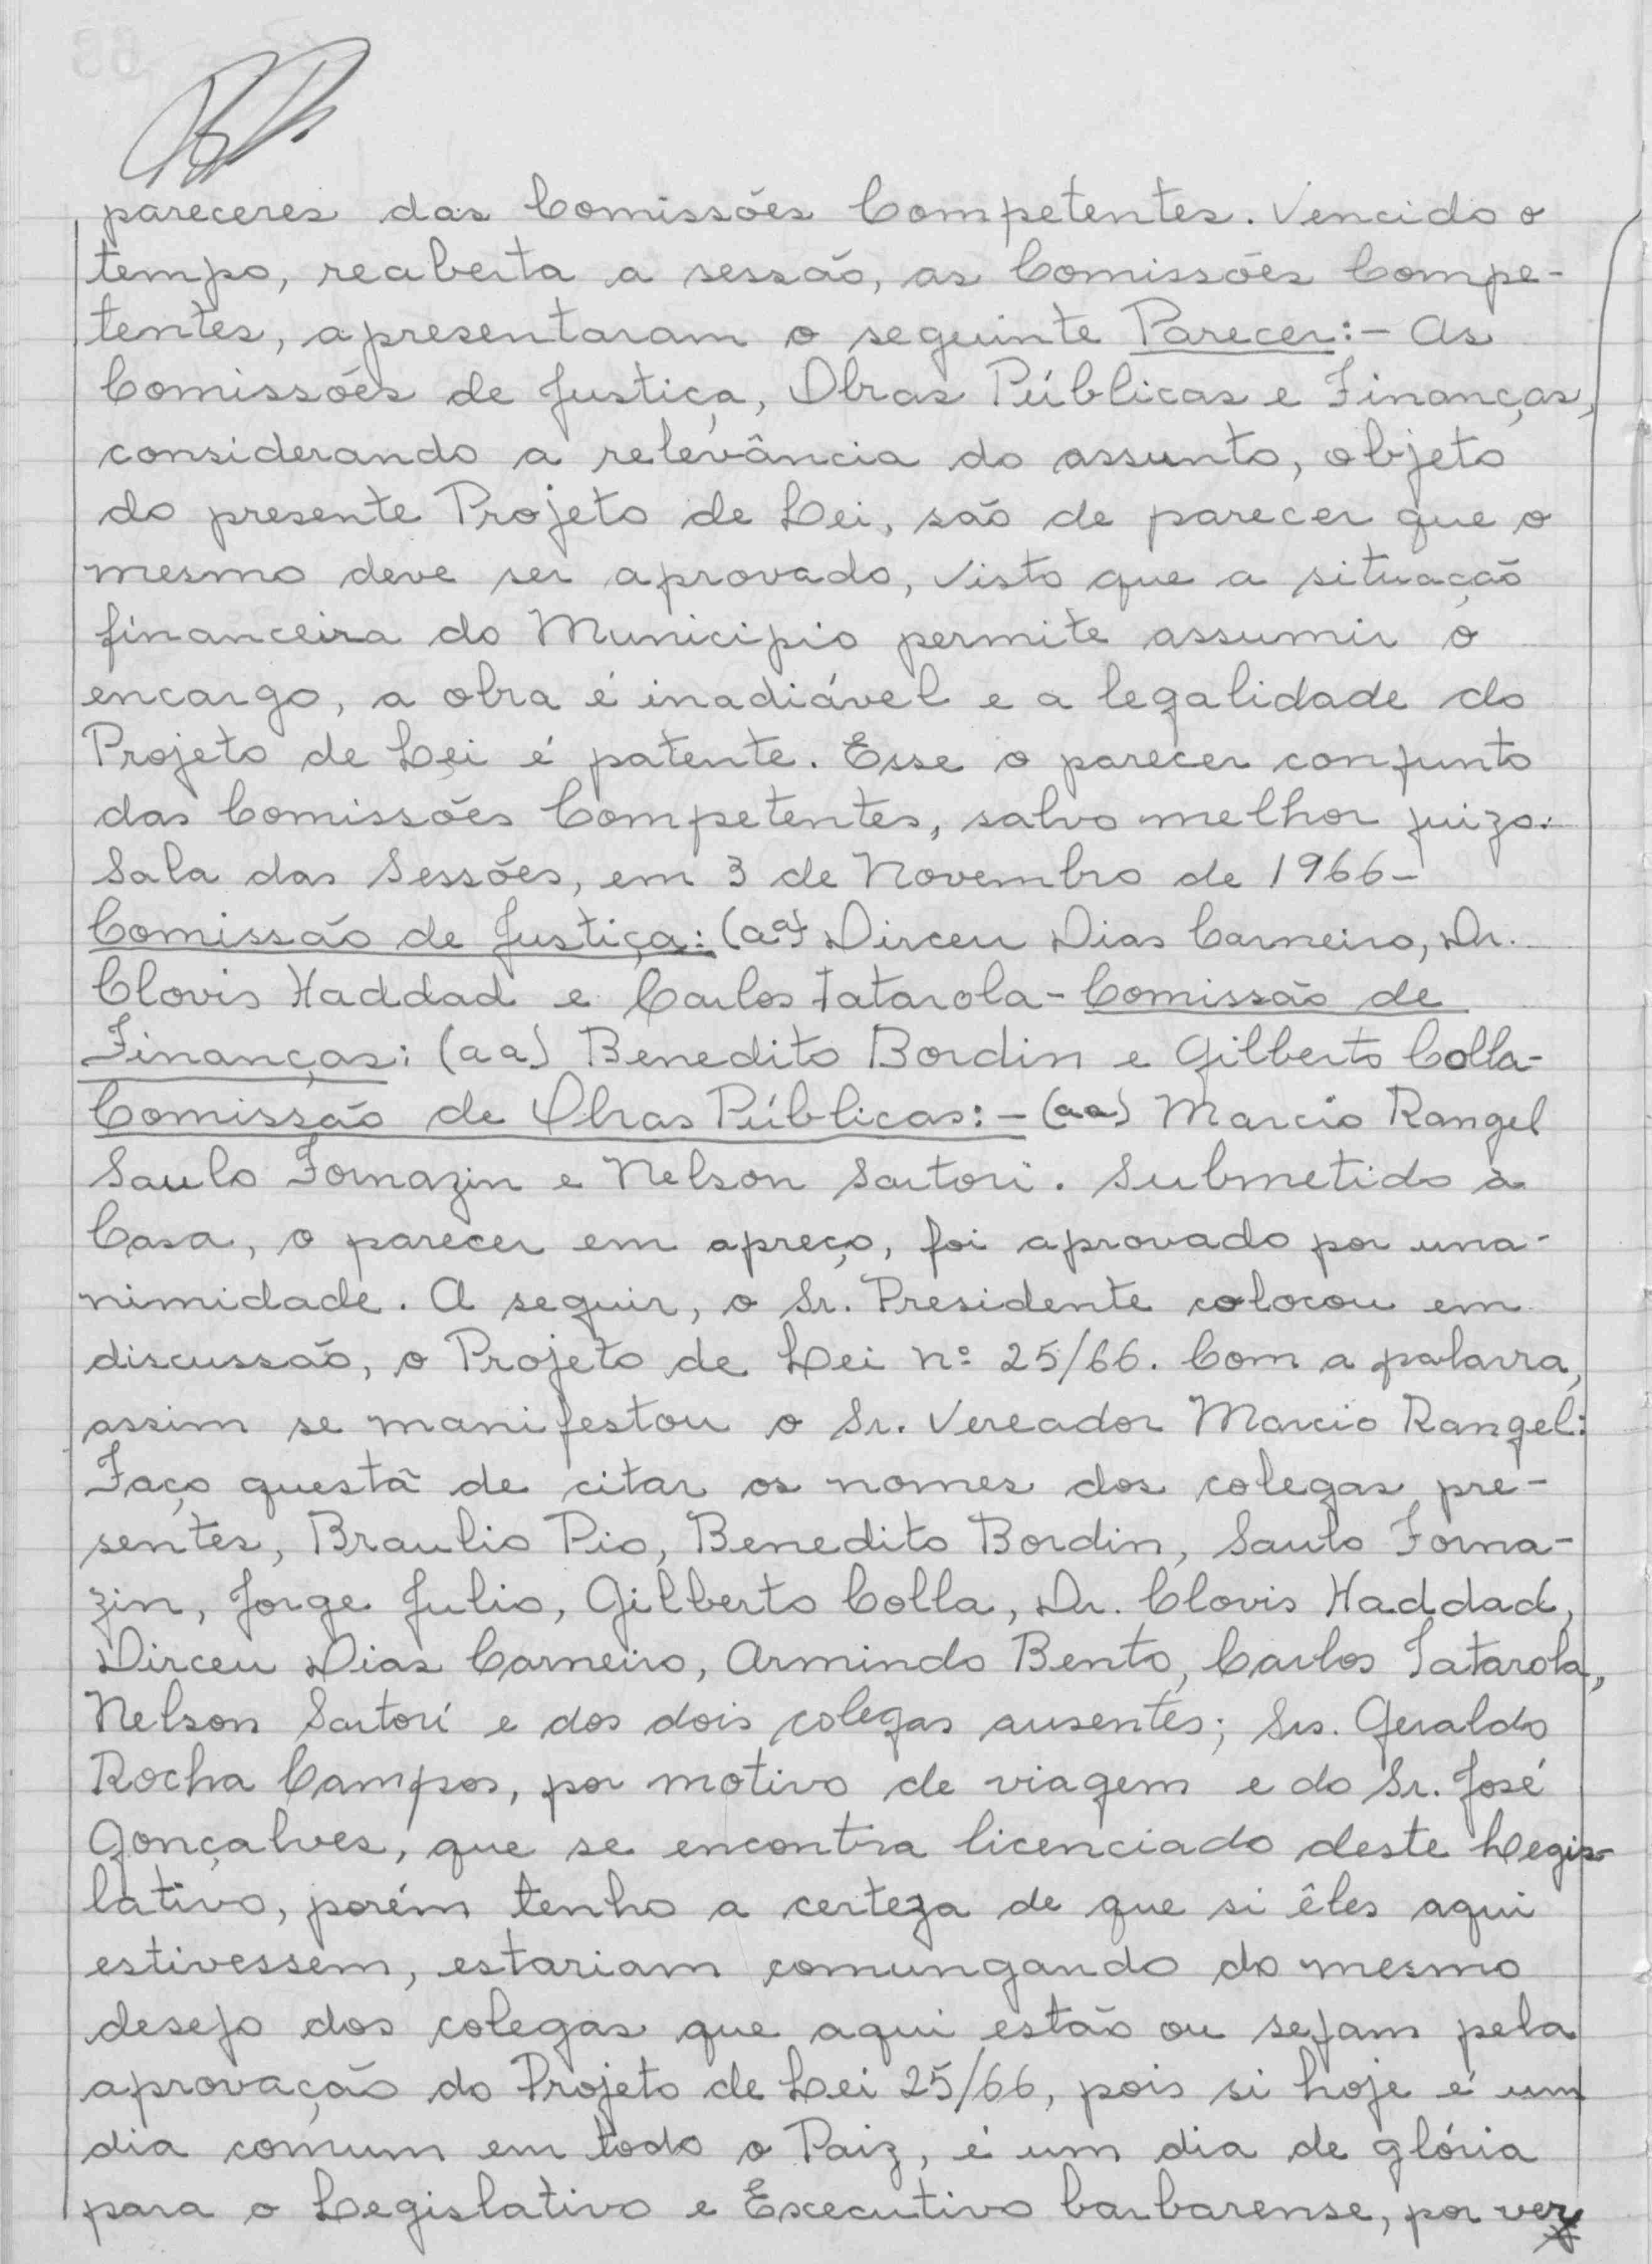 pareceres das Comissões Competentes. Vencido o
tempo, reaberta a sessão, as Comissões Compe-
tentes, apresentaram o seguinte Parecer:- As
Comissões de Justiça, Obras Públicas e Finanças,
considerando a relevância do assunto, objeto
do presente Projeto de Lei, são de parecer que o
mesmo deve ser aprovado, visto que a situação
financeira do Municipio permite assumir o
encargo, a obra é inadiável e a legalidade do
Projeto de Lei é patente. Esse o parecer conjunto
das Comissões Competentes, salvo melhor juizo.
Sala das Sessões, em 3 de Novembro de 1966-
Comissão de Justiça: (aa) Dirceu Dias Carneiro, Dr.
Clovis Haddad e Carlos Tatarola - Comissão de
Finanças: (aa) Benedito Bordin e Gilberto Colla-
Comissão de Obras Públicas:- (aa) Marcio Rangel
Saulo Fornazin e Nelson Sartori. Submetido à
Casa, o parecer em apreço, foi aprovado por una-
nimidade. A seguir, o Sr. Presidente colocou em
discussão, o Projeto de Lei nº 25/66. Com a palavra,
assim se manifestou o Sr. Vereador Marcio Rangel:
Faço questã de citar os nomes dos colegas pre-
sentes, Braulio Pio, Benedito Bordin, Saulo Forna-
zin, Jorge Julio, Gilberto Colla, Dr. Clovis Haddad,
Dirceu Dias Carneiro, Armindo Bento, Carlos Tatarola,
Nelson Sartori e dos dois colegas ausentes; Srs. Geraldo
Rocha Campos, por motivo de viagem e do Sr. José
Gonçalves, que se encontra licenciado deste Legis-
lativo, porém tenho a certeza de que si êles aqui
estivessem, estariam comungando do mesmo
desejo dos colegas que aqui estão ou sejam pela
aprovação do Projeto de Lei 25/66, pois si hoje é um
dia comum em todo o Paiz, é um dia de glória
para o Legislativo e Executivo barbarense, por ver